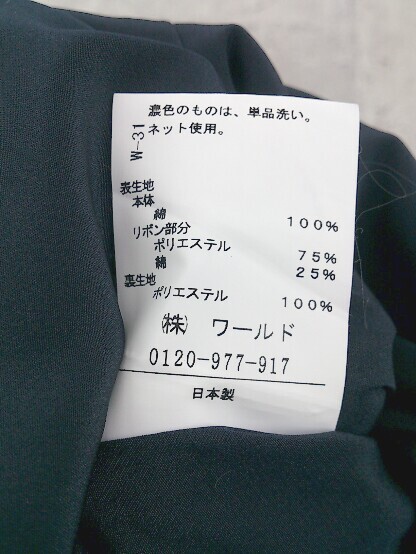 濃色のものは、単品洗い。
ネット使用。
W-31
表生地
本体
綿 100%
リボン部分
ポリエステル 75%
綿 25%
裏生地
ポリエステル 100%
㈱ ワールド
0120-977-917
日本製